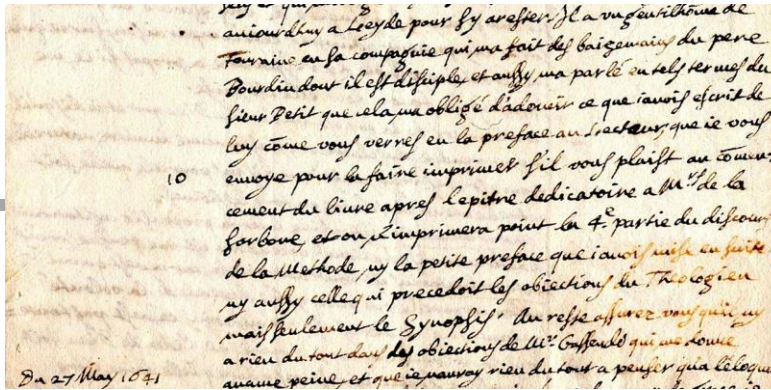 aujourdhuy a Leyde pour sy arester. Il a un gentilhõme de
Touraine en sa compagnie qui ma fait des baizemains du pere
Bourdin dont il est disciple, et aussy ma parlé en tels termes du
sieur Petit que cela ma obligé dadoucir ce que iauois escrit de
luy cõme vous verres en la preface au Lecteur, que ie vous
10 enuoye pour la faire imprimer sil vous plaist au cõmen-
cement du liure apres lepitre dedicatoire a Mrs de la
sorbone, et on nimprimera point la 4e partie du discours
de la Methode, ny la petite preface que iauois mise en suite
ny aussy celle qui precedoit les obiections du Theologien
mais seulement le Synopsis. Au reste assurez vous quil ny
a rien du tout dans les obiections de Mr Gassendi qui me donne
aucune peine, et que ie nauray rien du tout a penser qua
Du 27 May 1641